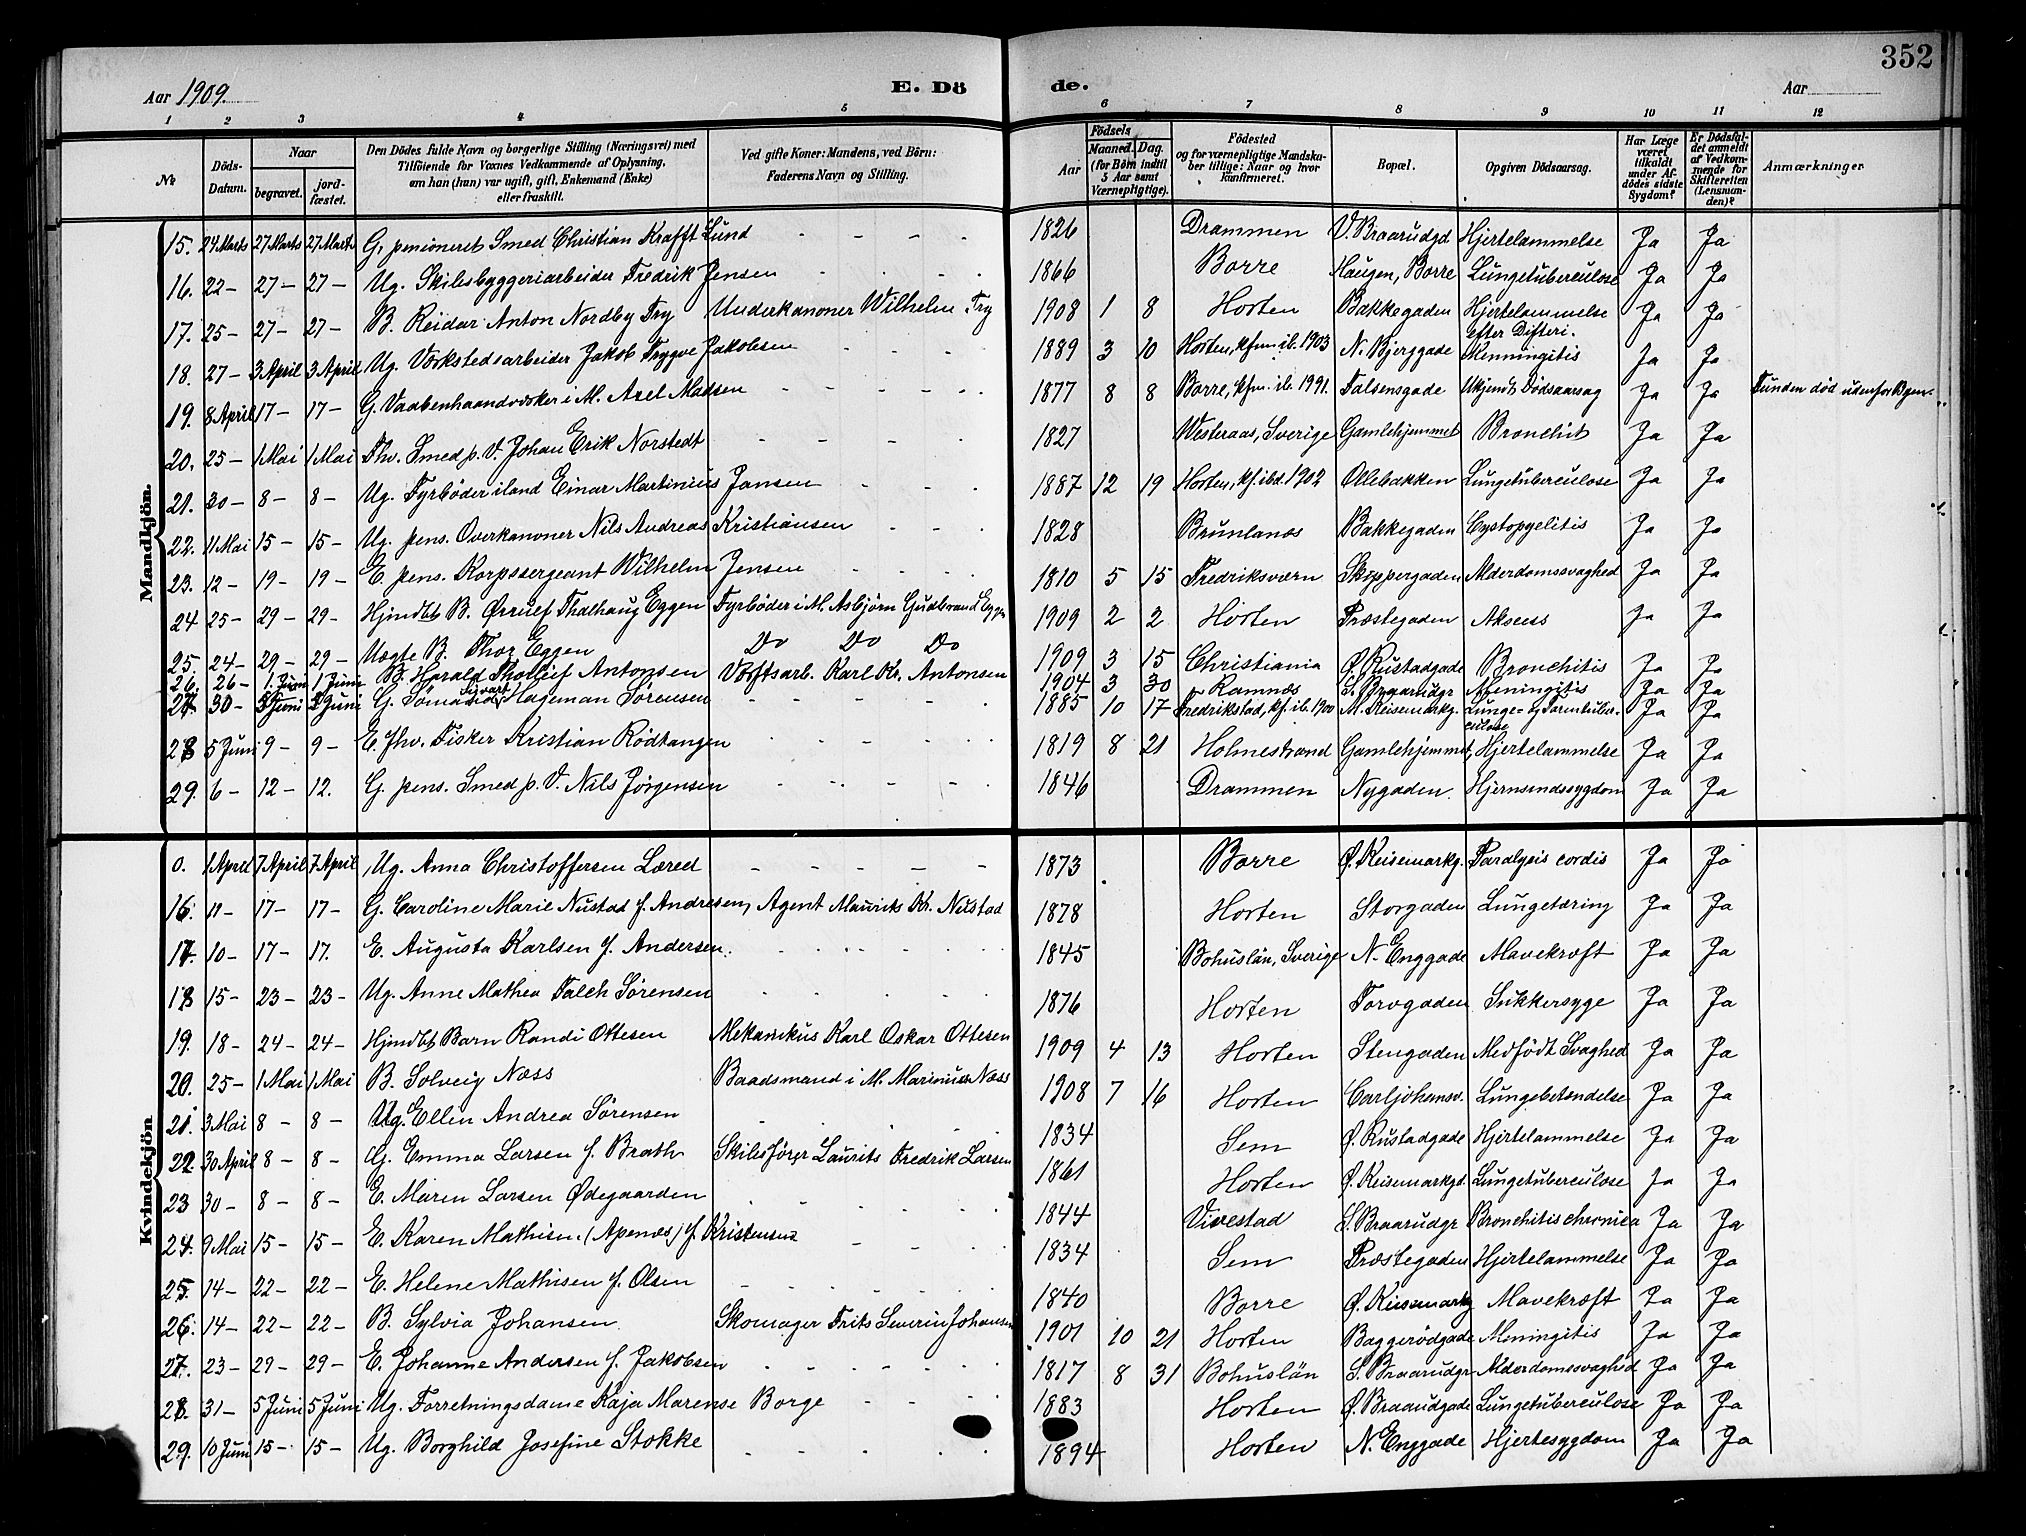 352
Aar 1909. E. Dö de. Aar
1 2 3 4 5 6 7 8 9 10 11 12
Nr. Döds-Datum. Naar begravet. jord-fæstet. Den Dödes fulde Navn og borgerlige Stilling (Næringsvei) med Tilföiende for Voxnes Vedkommende af Oplysning, om han (hun) var ugift, gift, Enkemand (Enke) eller fraskilt. Ved gifte Koner: Mandens, ved Börn: Faderens Navn og Stilling. Födsels Aar Maaned. Dag. (for Börn indtil 5 Aar samt Værnepligtige). Födested og for værnepligtige Mandska-ber tillige: Naar og hvor konfirmeret. Bopæl. Opgiven Dödsaarsag. Har Læge været tilkaldt under Af-dödes sidste Sygdom? Er Dödsfal-det anmeldt af Vedkom-mende for Skifteretten (Lensman-den)? Anmærkninger
Mandkjön.
15. 24 Marts 27 Marts 27 Marts G. pensioneret Smed Christian Krafft Lund - - - - 1826 Drammen V. Braarudgd Hjertelammelse Ja Ja
16. 22 - 27 - 27 - Ug. Skibsbyggeriarbeider Fredrik Jensen - - - - 1866 Borre Haugen, Borre Lungetuberculose Ja Ja
17. 25 - 27 - 27 - B. Reidar Anton Nordby Fry Underkanoner Wilhelm Fry 1908 1 8 Horten Bakkegaden Hjertelammelse efter Difteri. Ja Ja
18. 27 - 3 April 3 April Ug. Værkstedsarbeider Jakob Trygve Jakobsen - - - 1889 3 10 Horten, kfm ib. 1903 N. Bjerggade Menningitis Ja Ja
19. 8 April 17 - 17 - G. Vaabenhaandværker i M. Axel Madsen - - - - 1877 8 8 Borre, kfm. ib. 1991. Falsensgade Ukjendt Dödsaarsag Ja Ja Funden död udenfor Byen.
20. 25 - 1 Mai 1 Mai Fhv. Smed p. V. Johan Erik Norstedt - - - - 1827 Westeraas, Sverige Gamlehjemmet Bronchit Ja Ja
21. 30 - 8 - 8 - Ug. Fyrbøder iland Einar Martinius Jansen - - - 1887 12 19 Horten, kf. ibd. 1902 Ollebakken Lungetuberculose Ja Ja
22. 11 Mai 15 - 15 - Ug. pens. Overkanoner Nils Andreas Kristiansen - - - 1828 Brunlanæs Bakkegaden Cystopyelitis Ja Ja
23. 12 - 19 - 19 - E. pens. Korpssergeant Wilhelm Jensen - - - - 1810 5 15 Fredriksværn Skippergaden Alderdomssvaghed Ja Ja
24 25 - 29 - 29 - Hjmdbt B. Ørnulf Thalhaug Eggen Fyrbøder i M. Asbjørn Gudbrand Eggen 1909 2 2 Horten Præstegaden Ja Ja
25 24 - 29 - 29 - Uægte B. Thor Eggen Do Do Do 1909 3 15 Christiania Ø. Rustadgade Bronchitis Ja Ja
26. 26 - 1 Juni 1 Juni B. Harald Thorleif Antonsen Værftsarb. Karl Kr. Antonsen 1904 3 30 Ramnæs S. Braarudgr Meningitis Ja Ja
27. 30 - 5 Juni 5 Juni G. Sømand Sigvart Hageman Sørensen - - - - 1885 10 17 Fredrikstad, kf. ib. 1900 M. Keisemarkg. Lunge- og Tarmtuber-culose Ja Ja
28 5 Juni 9 - 9 - E. fhv. Fisker Kristian Rødtangen - - - - 1819 8 21 Holmestrand Gamlehjemmet Hjertelammelse Ja Ja
29. 6 - 12 - 12. G. pens. Smed p. V. Nils Jørgensen - - - - 1846 Drammen Nygaden. Hjernsindssygdom Ja Ja
Kvindekjön
0. 1 April 7 April 7 April Ug. Anna Christoffersen Læred - - - - - 1873 Borre Ø. Keisemarkg. Paralysis cordis Ja Ja
16. 11 - 17 - 17 - G. Caroline Marie Nustad f. Andresen, Agent Maurits Kr. Nustad 1878 Horten Storgaden Lungetæring Ja Ja
17. 10 - 17 - 17. E. Augusta Karlsen f. Andersen. - - - - 1845 Bohuslän, Sverige N. Enggade Mavekræft Ja Ja
18 15 - 23 - 23 - Ug. Anne Mathea Falch Sørensen - - - - 1876 Horten Torvgaden Sukkersyge Ja Ja
19. 18 - 24 - 24 - Hjmdbt Barn Randi Ottesen Mekanikus Karl Oskar Ottesen 1909 4 13 Horten Stengaden Medfödt Svaghed Ja Ja
20. 25 - 1 Mai 1 Mai B. Solveig Næss Baadsmand i M. Marinius Næss 1908 7 16 Horten Carljohansv. Lungebetændelse Ja Ja
21. 3 Mai 8 - 8 - Ug. Ellen Andrea Sørensen - - - - 1834 Sem Ø. Rustadgade Hjertelammelse Ja Ja
22 30 April 8 - 8 - G. Emma Larsen f. Brath Skibsfører Laurits Fredrik Larsen 1861 Horten Ø. Keisemarkgd. Lungetuberculose Ja Ja
23 30 - 8 - 8 - E. Maren Larsen Ødegaarden - - - - 1844 Vivestad S. Braarudgr Bronchitis chronica Ja Ja
24. 9 Mai 15 - 15 - E. Karen Mathisn. (Apenæs) f. Kristensen - - - 1834 Sem Præstegaden Hjertelammelse Ja Ja
25. 14 - 22 - 22 - E. Helene Mathisen f. Olsen - - - - - 1840 Borre Ø. Keisemarkg Mavekræft Ja Ja
26. 14 - 22 - 22 - B. Sylvia Johansen Skomager Frits Severin Johansen 1901 10 21 Horten Baggerødgade Meningitis Ja Ja
27. 23 - 29 - 29 - E. Johanne Andersen f. Jakobsen - - - - 1817 8 31 Bohuslän S. Braarudgr Alderdomssvaghed Ja Ja
28. 31 - 5 Juni 5 Juni Ug. Forretningsdame Kaja Marense Borge - - - 1883 Horten Ø. Braarudgade Lungetuberculose Ja Ja
29. 10 Juni 15 - 15 - Ug. Borghild Josefine Stokke - - - - - 1894 Horten N. Enggade Hjertesygdom Ja Ja